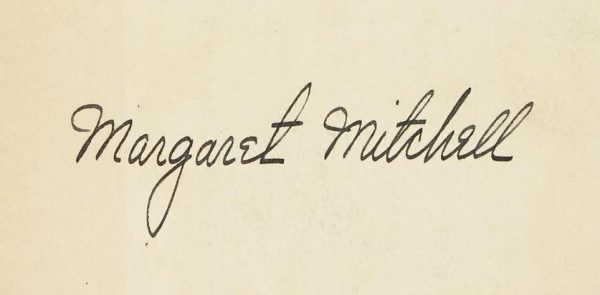 Margaret Mitchell